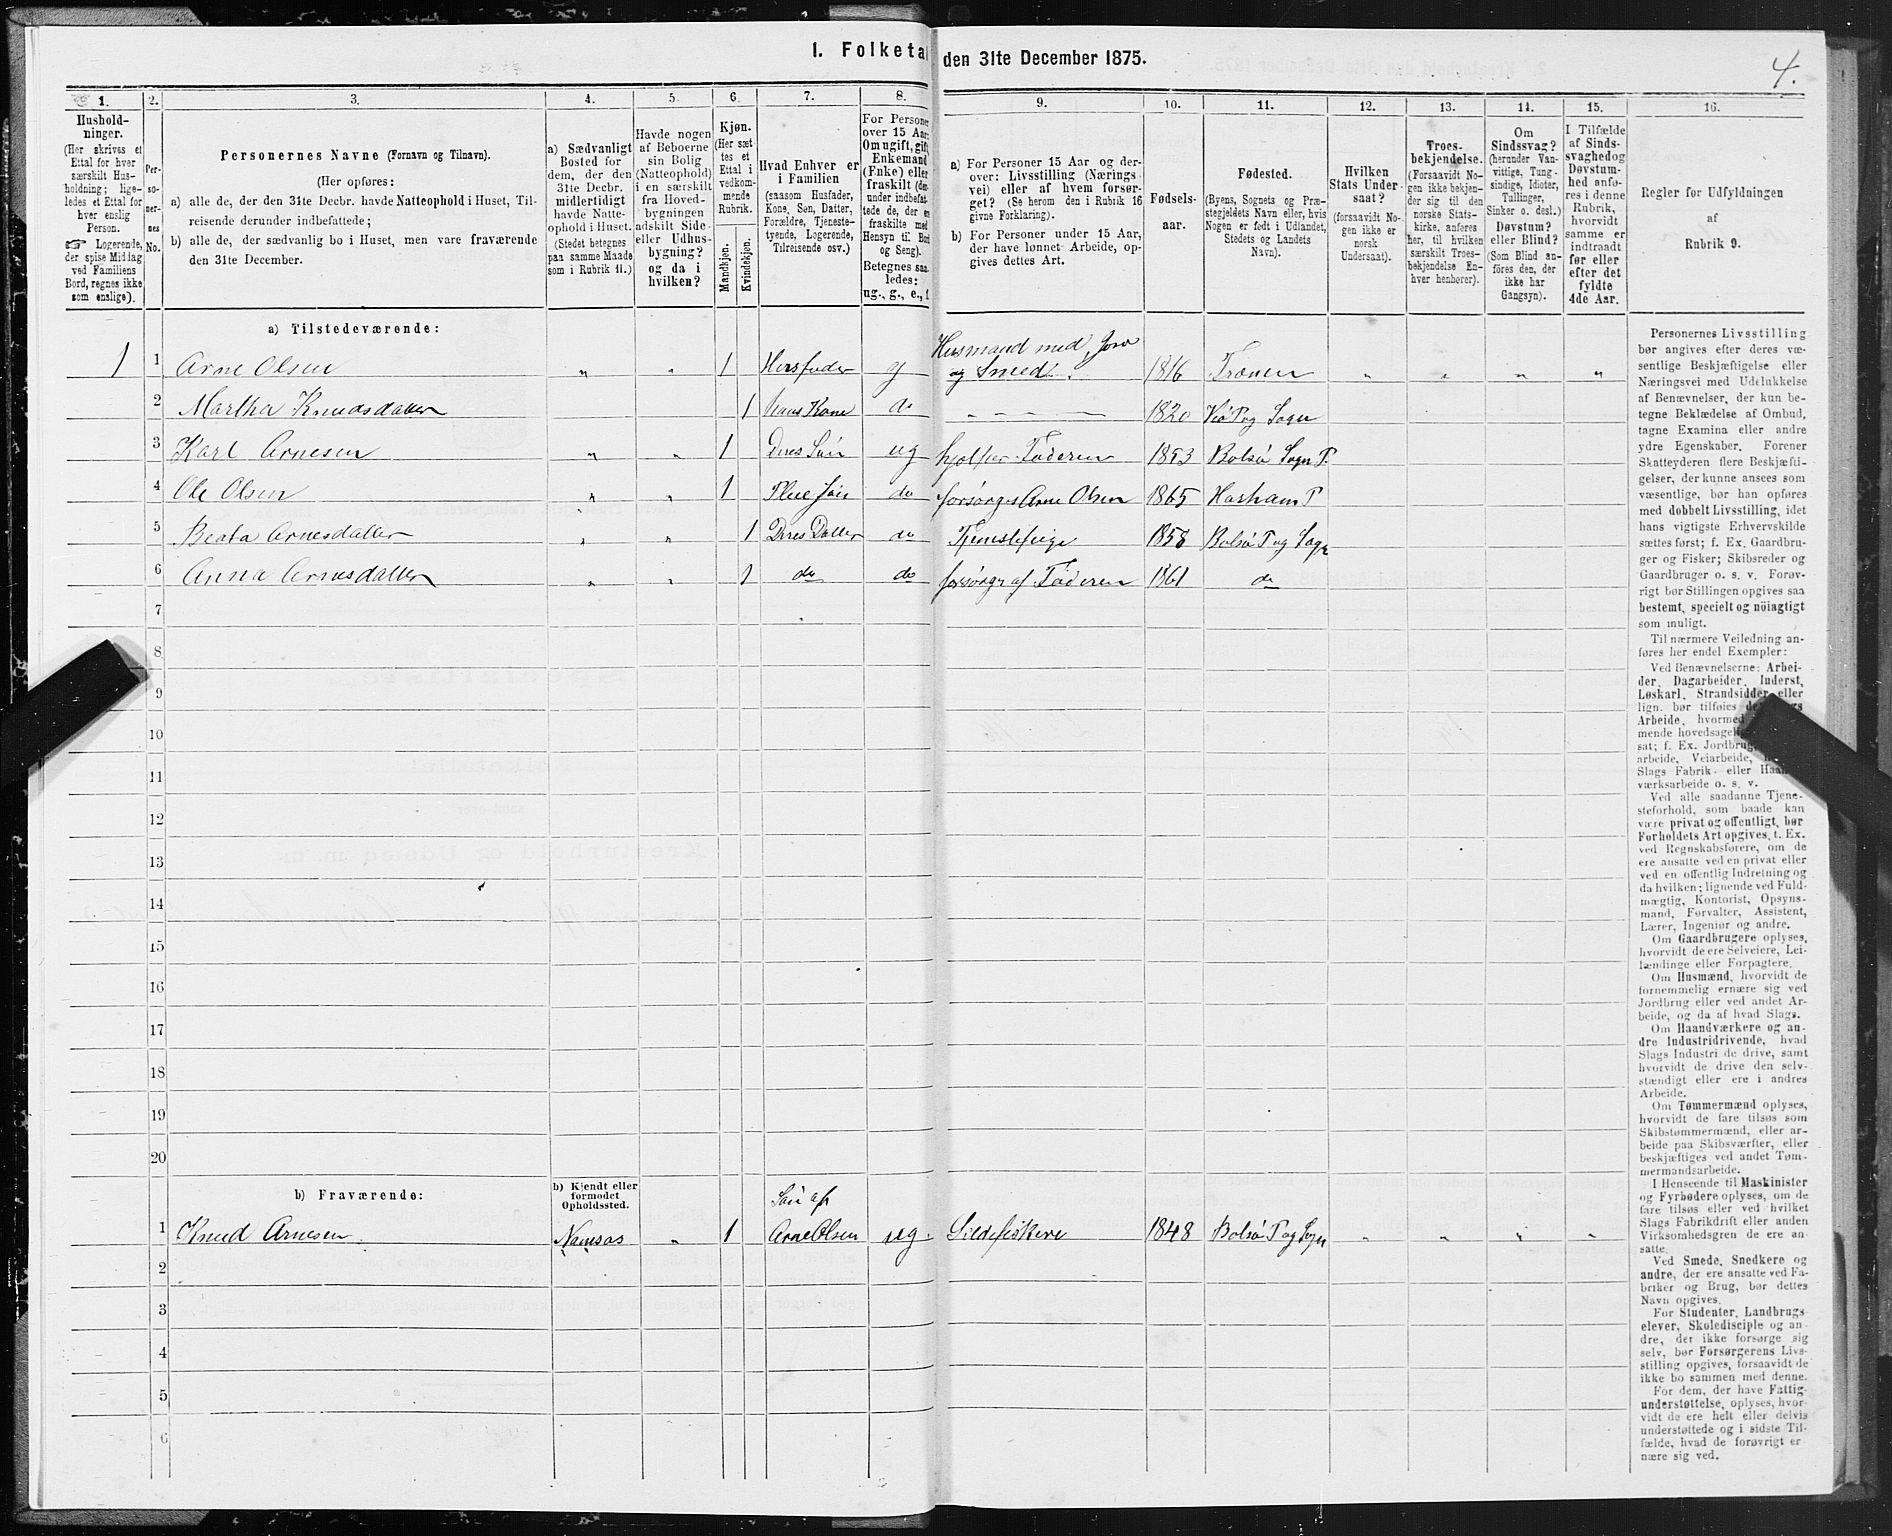 I. Folketal
den 31te December 1875.
4.
1. 2. 3. 4. 5. 6. 7. 8. 9. 10. 11. 12. 13. 14. 15. 16.
Hushold-
ninger.
(Her skrives et
Ettal for hver
særskilt Hus-
holdning; lige-
ledes et Ettal for
hver enslig
Person.
☞ Logerende,
der spise Middag
ved Familiens
Bord, regnes ikke
som enslige).
Per-
so-
ner-
nes
No.
Personernes Navne (Fornavn og Tilnavn).
(Her opføres:
a) alle de, der den 31te Decbr. havde Natteophold i Huset, Til-
reisende derunder indbefattede;
b) alle de, der sædvanlig bo i Huset, men vare fraværende
den 31te December.
a) Sædvanligt
Bosted for
dem, der den
31te Decbr.
midlertidigt
havde Natte-
ophold i Huset.
(Stedet betegnes
paa samme Maade
som i Rubrik 11.)
Havde nogen
af Beboerne
sin Bolig
(Natteophold)
i en særskilt
fra Hoved-
bygningen
adskilt Side-
eller Udhus-
bygning?
og da i
hvilken?
Kjøn.
(Her sæt-
tes et
Ettal i
vedkom-
mende
Rubrik.
Mandkjøn.
Kvindekjøn.
Hvad Enhver er
i Familien
(saasom Husfader,
Kone, Søn, Datter,
Forældre, Tjeneste-
tyende, Logerende,
Tilreisende osv.)
For Personer
over 15 Aar:
Om ugift, gift,
Enkemand
(Enke) eller
fraskilt (der-
under indbefat-
tede de, der ere
fraskilte med
Hensyn til Bord
og Seng).
Betegnes saa-
ledes:
ug., g., e., f
a) For Personer 15 Aar og der-
over: Livsstilling (Nærings-
vei) eller af hvem forsør-
get? (Se herom den i Rubrik 16
givne Forklaring).
b) For Personer under 15 Aar,
der have lønnet Arbeide, op-
gives dettes Art.
Fødsels-
aar.
Fødested.
(Byens, Sognets og Præ-
stegjeldets Navn eller, hvis
Nogen er født i Udlandet,
Stedets og Landets
Navn).
Hvilken
Stats Under-
saat?
(forsaavidt No-
gen ikke er
norsk
Undersaat).
Troes-
bekjendelse.
(Forsaavidt No-
gen ikke bekjen-
der sig til den
norske Stats-
kirke, anføres
her, til hvilken
særskilt Troes-
bekjendelse En-
hver henhører).
Om
Sindssvag?
(herunder Van-
vittige, Tung-
sindige, Idioter,
Tullinger,
Sinker o. desl.)
Døvstum?
eller Blind?
(Som Blind an-
føres den, der
ikke har
Gangsyn).
I Tilfælde
af Sinds-
svaghed og
Døvstum-
hed anfø-
res i denne
Rubrik,
hvorvidt
samme er
indtraadt
før eller
efter det
fyldte
4de Aar.
Regler for Udfyldningen
af
Rubrik 9.
a) Tilstedeværende:
1 1 Arne Olsen „ „ 1 Husfader g Husmand med Jord og Smed 1816 Trænen „ „ „ „
2 Martha Knudsdatter 1 hans Kone do „ — — — 1820 Veø P og Sogn
3 Karl Arnesen „ „ 1 Deres Søn ug hjælper Faderen 1853 Bolsø Sogn P.
4 Ole Olsen „ „ 1 Pleie Søn do forsørges Arne Olsen 1865 Harham P
5 Beata Arnesdatter „ „ 1 Deres Datter do Tjenestepige 1858 Bolsø P og Sogn
6 Anna Arnesdatter „ „ 1 do do forsørg af Faderen 1861 do
7
8
9
10
11
12
13
14
15
16
17
18
19
20
b) Fraværende:
b) Kjendt eller
formodet
Opholdssted.
1 Knud Arnesen Namsos „ 1 Søn af Arne Olsen ug. Sildefiskere 1848 Bolsø P og Sogn „ „ „ „
2
3
4
5
6
Personernes Livsstilling
bør angives efter deres væ-
sentlige Beskjæftigelse eller
Næringsvei med Udelukkelse
af Benævnelser, der kun be-
tegne Beklædelse af Ombud,
tagne Examina eller andre
ydre Egenskaber. Forener
Skatteyderen flere Beskjæfti-
gelser, der kunne ansees som
væsentlige, bør han opføres
med dobbelt Livsstilling, idet
hans vigtigste Erhvervskilde
sættes først; f. Ex. Gaardbru-
ger og Fisker; Skibsreder og
Gaardbruger o. s. v. Forøv-
rigt bør Stillingen opgives saa
bestemt, specielt og nöiagtigt
som muligt.
Til nærmere Veiledning an-
føres her endel Exempler:
Ved Benævnelserne: Arbei-
der, Dagarbeider, Inderst,
Løskarl, Strandsidder eller
lign. bør tilføies
Arbeide, hvormed
mende hovedsagelig
sat; f. Ex. Jordbrug
arbeide, Veiarbeide,
Slags Fabrik- eller Haand-
værksarbeide o. s. v.
Ved alle saadanne Tjene-
steforhold, som baade kan
være privat og offentligt, bør
Forholdets Art opgives, t. Ex.
ved Regnskabsførere, om de
ere ansatte ved en privat eller
ved en offentlig Indretning og
da hvilken; lignende ved Fuld-
mægtig, Kontorist, Opsyns-
mand, Forvalter, Assistent,
Lærer, Ingeniør og andre.
Om Gaardbrugere oplyses,
hvorvidt de ere Selveiere, Lei-
lændinge eller Forpagtere.
Om Husmænd, hvorvidt de
fornemmelig ernære sig ved
Jordbrug eller ved andet Ar-
beide, og da af hvad Slags.
Om Haandværkere og an-
dre Industridrivende, hvad
Slags Industri de drive, samt
hvorvidt de drive den selv-
stændigt eller ere i andres
Arbeide.
Om Tømmermænd oplyses,
hvorvidt de fare tilsøs som
Skibstømmermænd, eller ar-
beide paa Skibsværfter, eller
beskjæftiges ved andet Tøm-
mermandsarbeide.
I Henseende til Maskinister
og Fyrbødere oplyses, om de
fare tilsøs eller ved hvilket
Slags Fabrikdrift eller anden
Virksomhedsgren de ere an-
satte.
Ved Smede, Snedkere og
andre, der ere ansatte ved Fa-
briker og Brug, bør dettes
Navn opgives.
For Studenter, Landbrugs-
elever, Skoledisciple og an-
dre, der ikke forsørge sig
selv, bør Forsørgerens Livs-
stilling opgives, forsaavidt de
ikke bo sammen med denne.
For dem, der have Fattig-
understøttelse, oplyses, hvor-
vidt de ere helt eller delvis
understøttede og i sidste Til-
fælde, hvad de forøvrigt er-
nære sig ved.